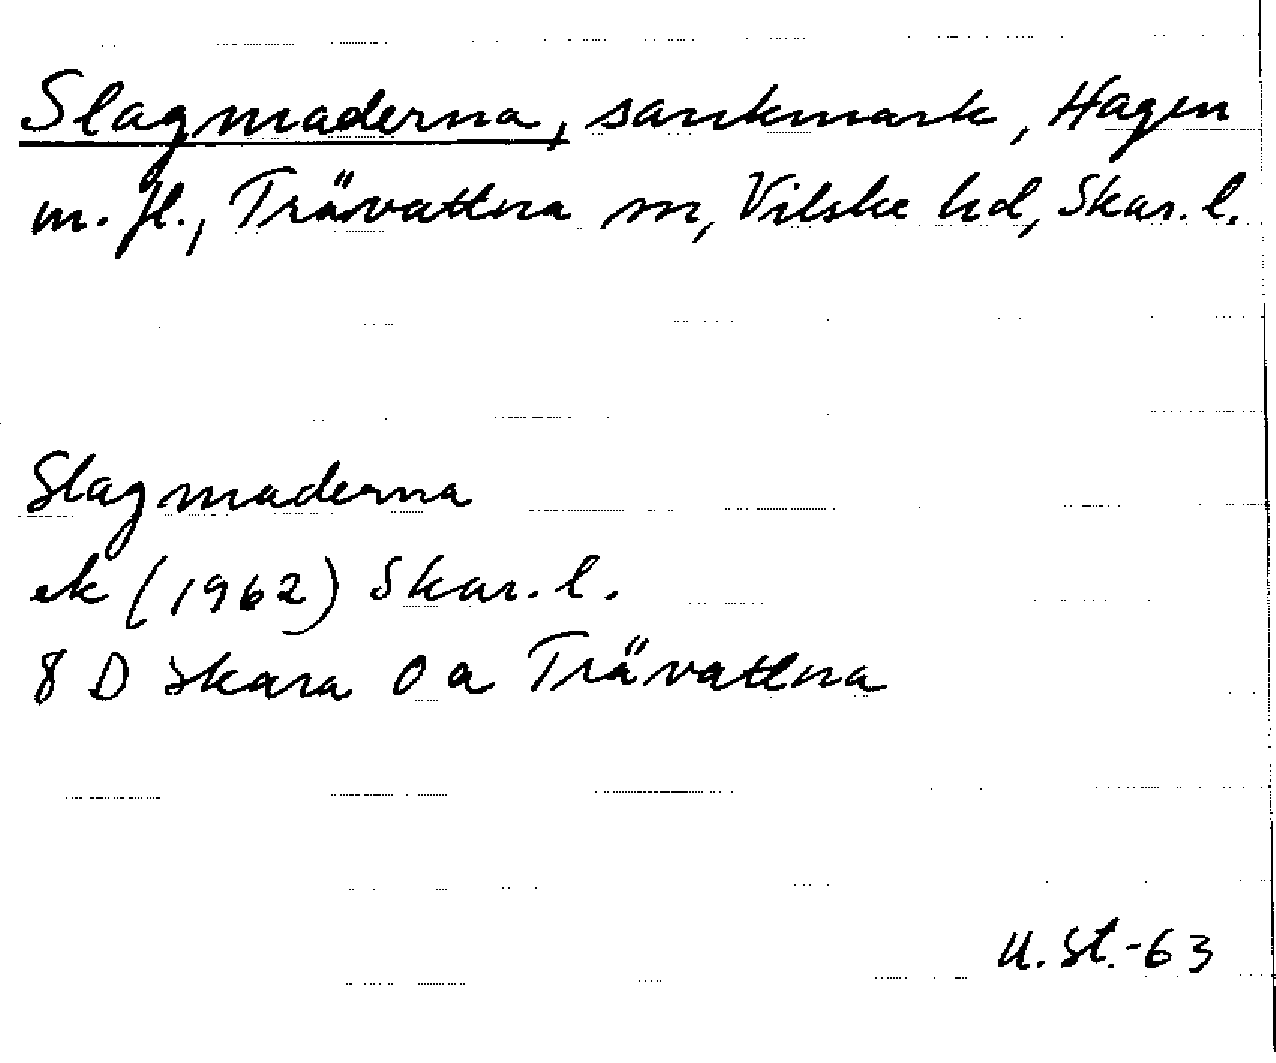 Slagmaderna, sankmark, Hagen
m. fl., Trävattna sn, Vilske hd, Skar. l.
Slagmaderna
ek (1962) Skar. l.
8 D Skara 0 a Trävattna
U. St.-63